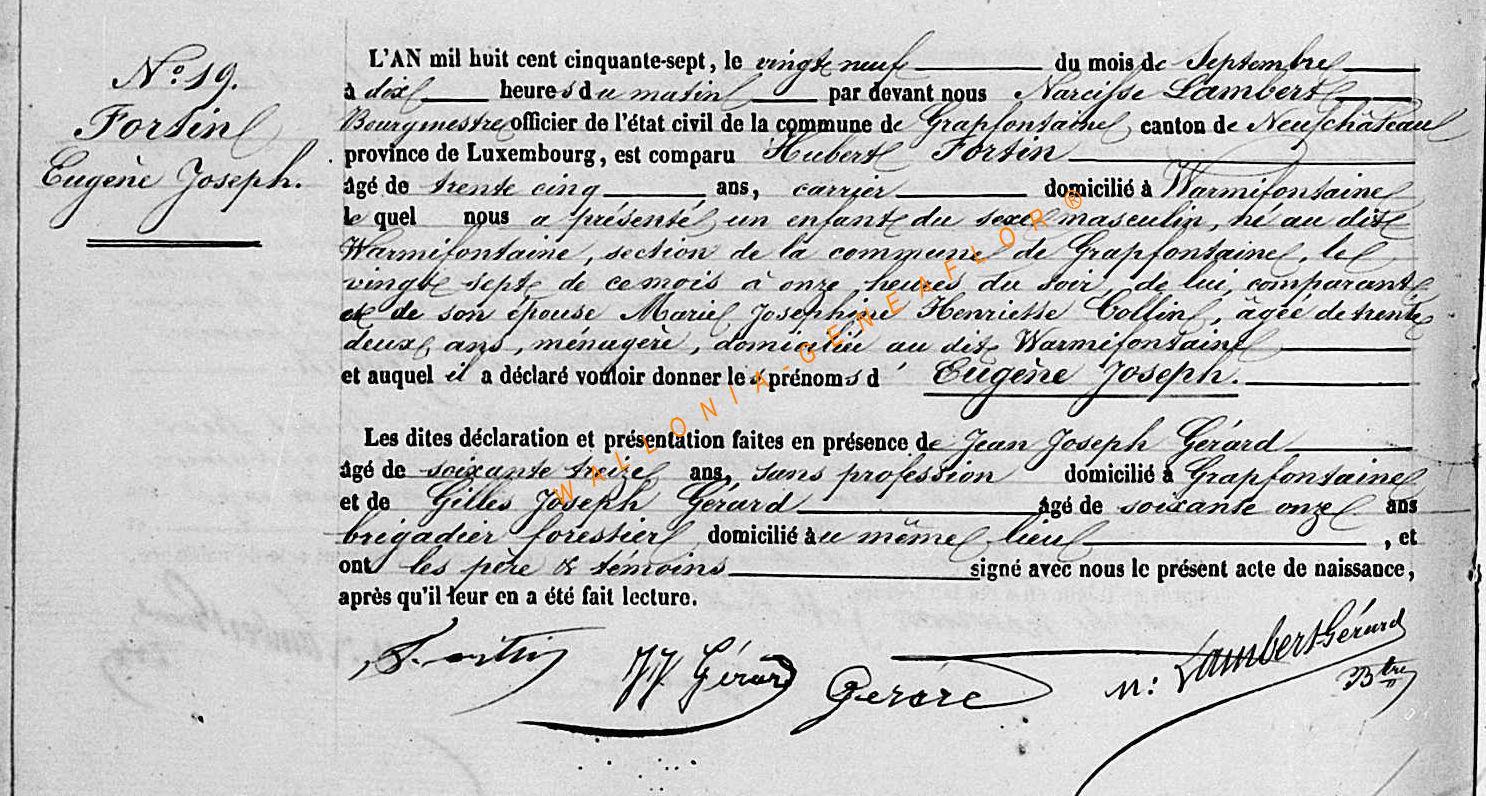 N.º 19.
Fortin
Eugène Joseph.
L'AN mil huit cent cinquante-sept, le vingt neuf du mois de Septembre
à dix heures du matin par devant nous Narcisse Lambert
Bourgmestre officier de l'état civil de la commune de Grapfontaine canton de Neufchâteau
province de Luxembourg, est comparu Hubert Fortin
âgé de trente cinq ans, carrier domicilié à Warmifontaine
le quel nous a présenté un enfant du sexe masculin, né au dit
Warmifontaine, section de la commune de Grapfontaine, le
vingt sept de ce mois à onze heures du soir, de lui comparant
et de son épouse Marie Josephine Henriette Collin, âgée de trente
deux ans, ménagère, domiciliée au dit Warmifontaine
et auquel il a déclaré vouloir donner les prénoms d' Eugène Joseph.
Les dites déclaration et présentation faites en présence de Jean Joseph Gérard
âgé de soixante treize ans, sans profession domicilié à Grapfontaine
et de Gilles Joseph Gérard âgé de soixante onze ans
brigadier forestier domicilié au même lieu, et
ont les père & témoins signé avec nous le présent acte de naissance,
après qu'il leur en a été fait lecture.
Fortin JJ Gérard Gerard N: Lambert Gérard
Btre
WALLONIA-GENEAFLOR®